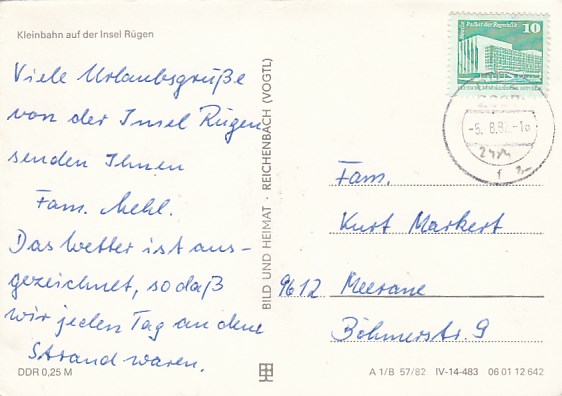 Kleinbahn auf der Insel Rügen
Viele Urlaubsgrüße
von der Insel Rügen
senden Ihnen
Fam. Mehl.
Das Wetter ist aus-
gezeichnet, so daß
wir jeden Tag an dene
Strand waren.
DDR 0,25 M
BILD UND HEIMAT · REICHENBACH (VOGTL)
Palast der Republik 10
-5. 8.82-18
Fam.
Kurt Markert
9612 Meerane
Böhmerstr. 9
A 1/B 57/82 IV-14-483 06 01 12 642